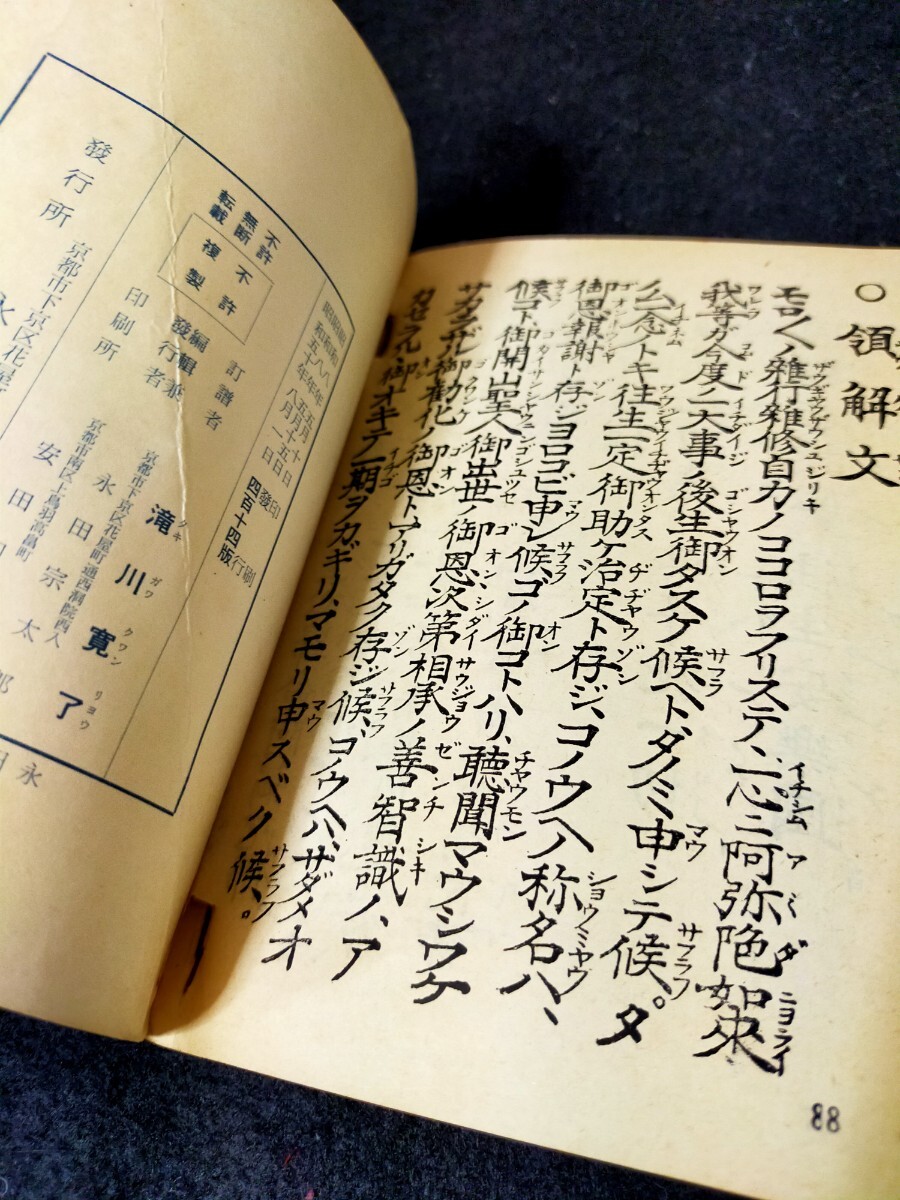 ○領解文
モロ〱ノ雑行雑修自力ノココロヲフリステテ、一心ニ阿弥陀如来
我等ガ今度ノ一大事ノ後生御タスケ候ヘト、タノミ申シテ候。タ
ノム一念ノトキ往生一定御助ケ治定ト存ジ、コノウヘノ称名ハ、
御恩報謝ト存ジヨロコビ申シ候。コノ御コトハリ、聴聞マウシワケ
候コト、御開山聖人御出世ノ御恩、次第相承ノ善智識ノ、ア
サカラザル御勧化ノ御恩ト、アリガタク存ジ候、コノウヘハサダメオ
カセラルヽ御オキテ一期ヲカギリ、マモリ申スベク候。
88
不許
無断
転載
不許
複製
年五月十日印刷
年五月十五日發行
昭和五十年八月一日四百十四版
訂譜者 滝川寛了
タキ ガワ クワン リョウ
京都市下京区花屋町通西洞院西入
編輯兼
發行者 永田宗太郎
京都市南区上鳥羽高畠町
印刷所 安田印
發行所 京都市下京区花屋
永
永田